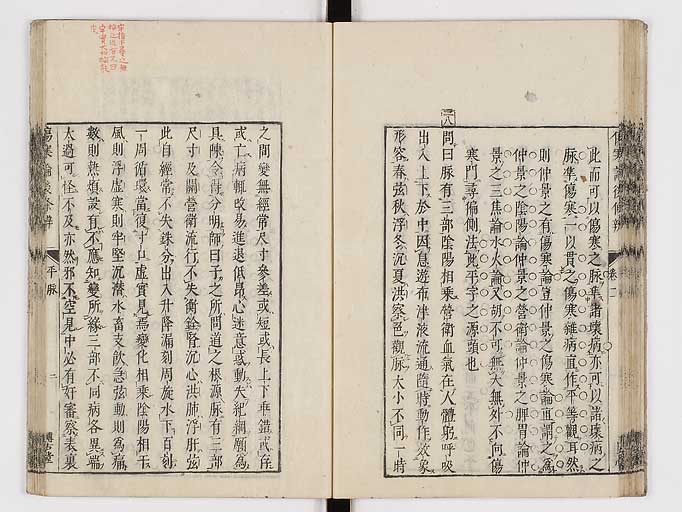 此而可以傷寒之脉準諸壞病亦可以諸壞病之
脉準傷寒一以貫之傷寒雜病宜作平等觀耳然
則仲景之有傷寒論豈仲景之傷寒論直謂之爲
仲景之陰陽論仲景之營衛論仲景之脾胃論仲
景之三焦論水火論又胡不可無大無外不向傷
寒門尋偏側法此平字之源頭也
問曰脉有三部陰陽相乘營衛血氣在人體躬呼吸
出入上下於中因息遊布津液流通隨時動作效象
形容春弦秋浮冬沉夏洪察色觀脉大小不同一時
之間變無經常尺寸參差或短或長上下乖錯或存
或亡病輒改易進退低昂心迷意惑動失紀綱願爲
具陳令得分明師曰子之所問道之根源脉有三部
尺寸及關營衛流行不失衡銓腎沉心洪肺浮肝弦
此自經常不失銖分出入升降漏刻周旋水下百刻
一周循環當復寸口虛實見焉變化相乘陰陽相干
風則浮虛寒則牢堅沉潛水畜支飲急弦動則爲痛
數則熱煩設有不應知變所緣三部不同病各異端
太過可怪不及亦然邪不空見中必有奸審察表裏
傷寒論後條辨
平脉
二
卷二